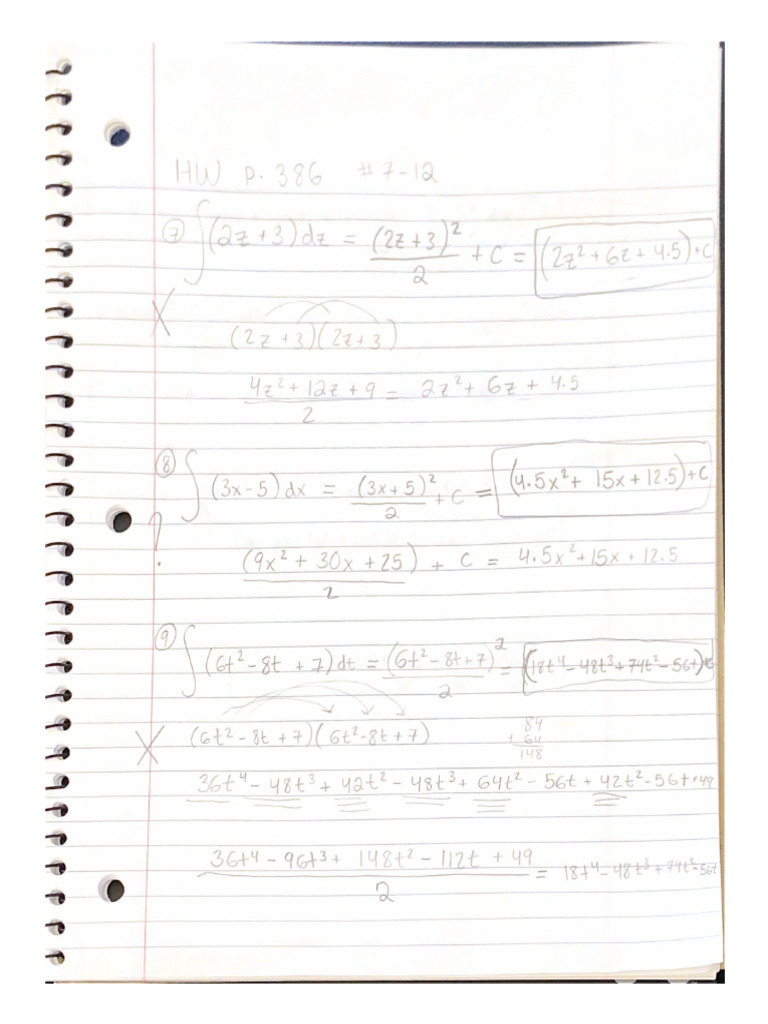 HW p. 386 #7-12
⑦ ∫(2z+3)dz = (2z+3)²/2 + C = (2z²+6z+4.5)+C
X
(2z+3)(2z+3)
4z²+12z+9/2 = 2z²+6z+4.5
⑧ ∫(3x-5)dx = (3x+5)²/2 + C = (4.5x²+15x+12.5)+C
?
(9x²+30x+25)/2 + C = 4.5x²+15x+12.5
⑨ ∫(6t²-8t+7)dt = (6t²-8t+7)²/2 = (18t⁴-48t³+74t²-56t)+c
X
(6t²-8t+7)(6t²-8t+7)
84
+ 64
148
36t⁴-48t³+42t²-48t³+64t²-56t+42t²-56t+49
36t⁴-96t³+148t²-112t+49/2 = 18t⁴-48t³+74t²-56t